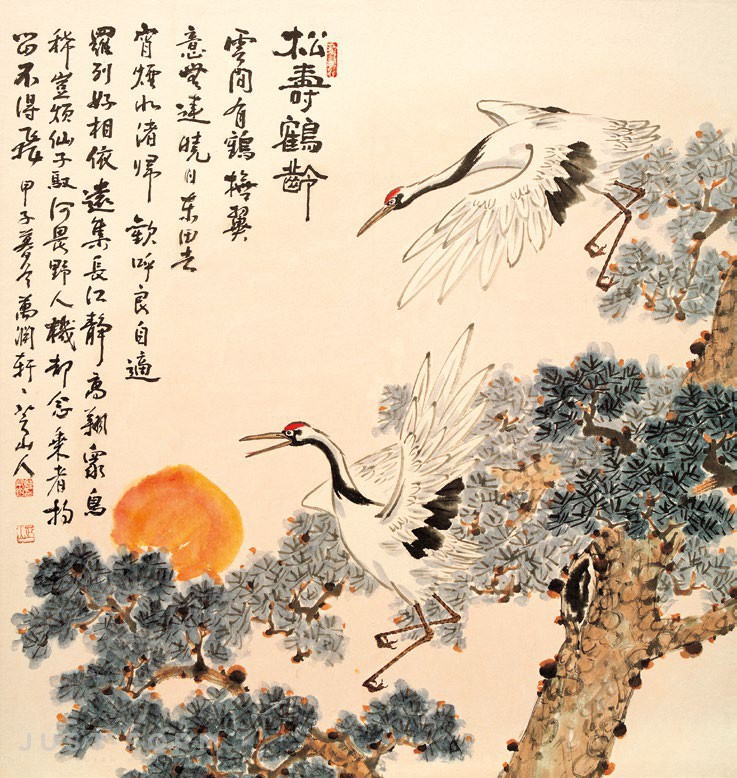 松壽鶴齡
雲間有鶴撫翼
意無違曉日東田去
宵煙北渚歸歡呼良自適
羅列好相依遠集長江靜高翔衆鳥
稀豈煩仙子馭何畏野人機却念乘者拘
留不得飛甲子萬潤軒山人